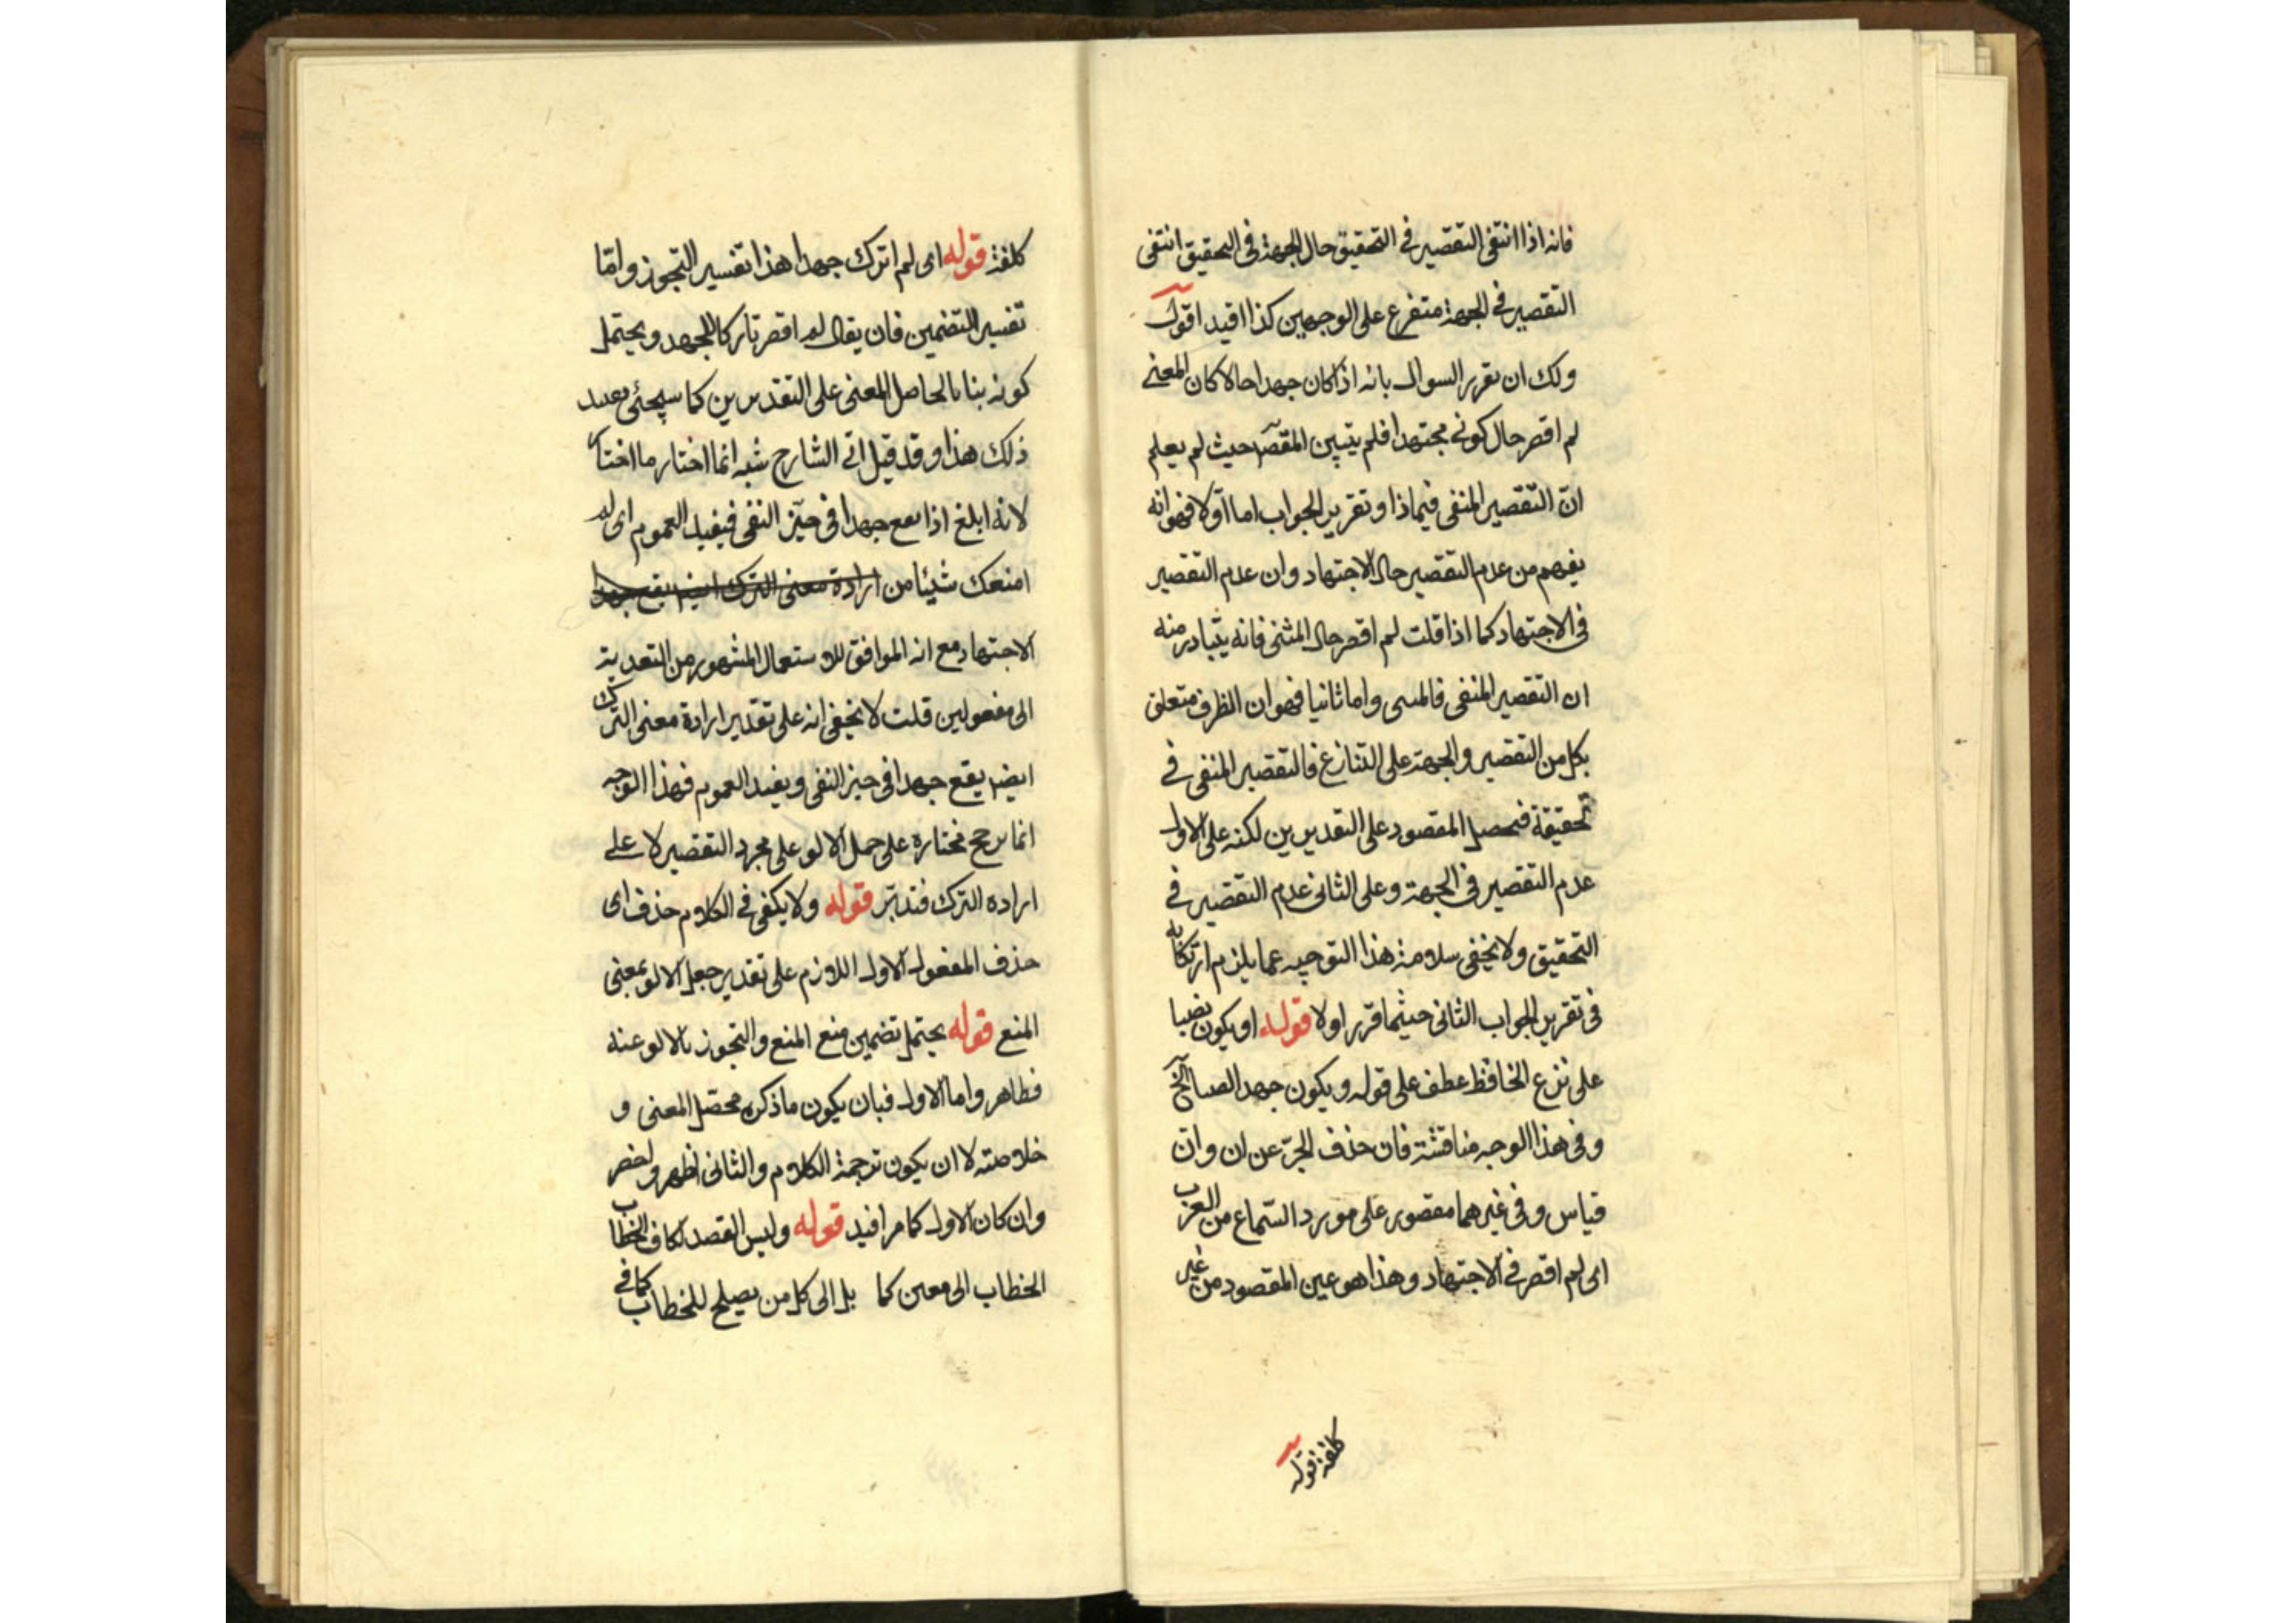 فانه اذا انتفى التقصير فى التحقيق حال الجهة فى التحقيق انتفى
التقصير فى الجهة متفرع على الوجهين كذا افيد اقول
ولك ان تقرر السوال بانه اذا كان جهدا حالا كان المعنى
لم اقصر حال كونى مجتهدا فلم يتبين المقصر حيث لم يعلم
انّ التقصير المنفى فيماذا وتقرير الجواب اما اوّلا فهو انه
يفهم من عدم التقصير حال الاجتهاد وان عدم التقصير
فى الاجتهاد كما اذا قلت لم اقصر حال المشى فانه يتبادر منه
ان التقصير المنفى فالمشى واما ثانيا فهو ان الظرف متعلق
بكل من التقصير والجهة على التنازع فالتقصير المنفى فى
تحقيقة فيحصل المقصود على التقديرين لكنه على الاول
عدم التقصير فى الجهة وعلى الثانى عدم التقصير فى
التحقيق ولا يخفى سلامة هذا التوجيه عما يلزم ارتكابه
فى تقرير الجواب الثانى حيثما قرر اولا قوله او يكون نصبا
على نزع الخافظ عطف على قوله ويكون جهد الصالح
وفى هذا الوجه مناقشة فان حذف الجرّ عن ان وانّ
قياس وفى غيرهما مقصور على مورد السّماع من العرب
اى لم اقصر فى الاجتهاد وهذا هو عين المقصود من غير
كلفة قوله
كلفة قوله اى لم اترك جهدا هذا تفسير التجوز وامّا
تفسير التضمين فان يقال لم اقصر تاركا للجهد ويحتمل
كونه بنا بالحاصل المعنى على التقديرين كما سيجئ بعيد
ذلك هذا وقد قيل انّ الشارح انما اختار ما اختار
لانه ابلغ اذا يقع جهدا فى حيّز النفى فيفيد العموم اى لم
امنعك شيئا من ارادة معنى الترك ايضا يقع جهدا
الاجتهاد مع انه الموافق للاستعمال المشهور من التعدية
الى مفعولين قلت لا يخفى انه على تقدير ارادة معنى الترك
ايضا يقع جهدا فى حيز النفى ويفيد العموم فهذا الوجه
انما يرجح مختاره على حمل الالو على مجرد التقصير لا على
اراده الترك فتدبّر قوله ولا يكفى فى الكلام حذف اى
حذف المفعول الاول اللازم على تقدير جعل الالو بمعنى
المنع قوله يحتمل تضمين منع المنع والتجوز بالالو عنه
فظاهر واما الاول فبان يكون ما ذكره محصّل المعنى و
خلاصته لا ان يكون ترجمة الكلام والثانى اظهر واخصر
وان كان الاول كما مر افيد قوله وليس القصد بكاف الخطاب
الخطاب الى معين كما بل الى كل من يصلح للخطاب كما فى